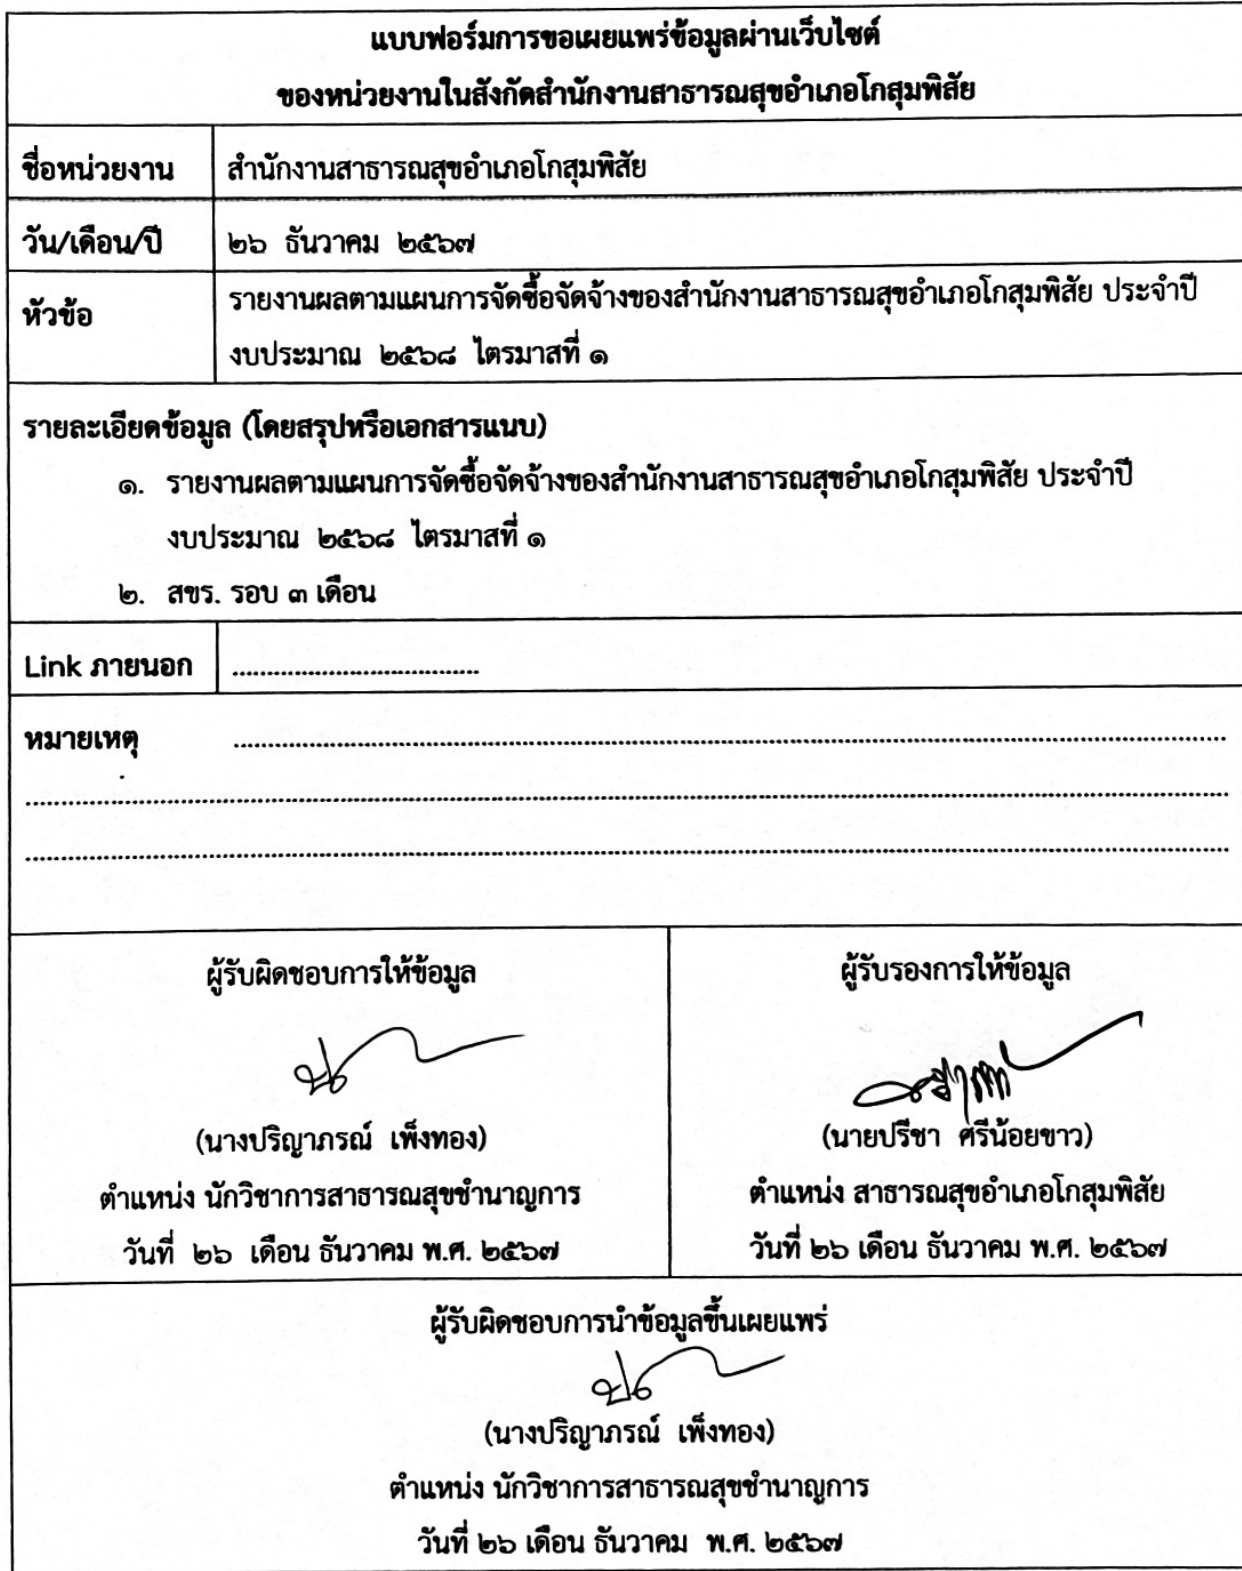 แบบฟอร์มการขอเผยแพร่ข้อมูลผ่านเว็บไซต์
ของหน่วยงานในสังกัดสำนักงานสาธารณสุขอำเภอโกสุมพิสัย
ชื่อหน่วยงาน สำนักงานสาธารณสุขอำเภอโกสุมพิสัย
วัน/เดือน/ปี ๒๖ ธันวาคม ๒๕๖๗
หัวข้อ รายงานผลตามแผนการจัดซื้อจัดจ้างของสำนักงานสาธารณสุขอำเภอโกสุมพิสัย ประจำปี
งบประมาณ ๒๕๖๘ ไตรมาสที่ ๑
รายละเอียดข้อมูล (โดยสรุปหรือเอกสารแนบ)
๑. รายงานผลตามแผนการจัดซื้อจัดจ้างของสำนักงานสาธารณสุขอำเภอโกสุมพิสัย ประจำปี
งบประมาณ ๒๕๖๘ ไตรมาสที่ ๑
๒. สขร. รอบ ๓ เดือน
Link ภายนอก ....................................
หมายเหตุ ....................................
....................................
....................................
ผู้รับผิดชอบการให้ข้อมูล
(นางปริญาภรณ์ เพ็งทอง)
ตำแหน่ง นักวิชาการสาธารณสุขชำนาญการ
วันที่ ๒๖ เดือน ธันวาคม พ.ศ. ๒๕๖๗
ผู้รับรองการให้ข้อมูล
(นายปรีชา ศรีน้อยขาว)
ตำแหน่ง สาธารณสุขอำเภอโกสุมพิสัย
วันที่ ๒๖ เดือน ธันวาคม พ.ศ. ๒๕๖๗
ผู้รับผิดชอบการนำข้อมูลขึ้นเผยแพร่
(นางปริญาภรณ์ เพ็งทอง)
ตำแหน่ง นักวิชาการสาธารณสุขชำนาญการ
วันที่ ๒๖ เดือน ธันวาคม พ.ศ. ๒๕๖๗